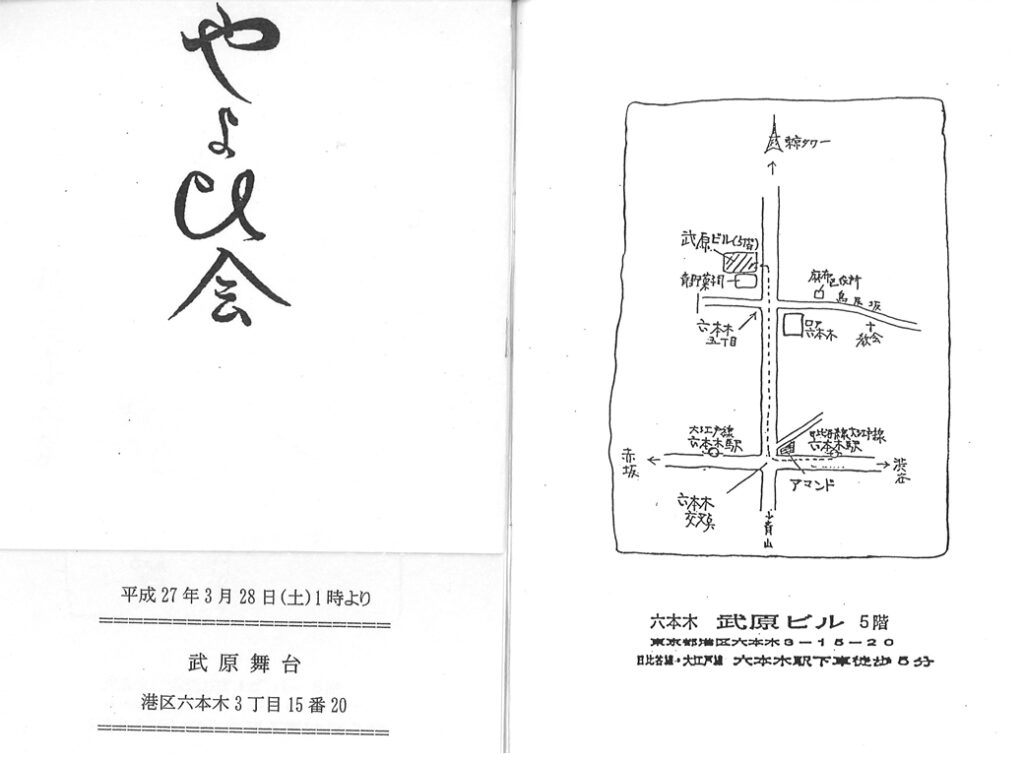 やよひ会
平成27年3月28日(土)1時より
武原舞台
港区六本木3丁目15番20
東京タワー
武原ビル(5階)
麻布区役所
鳥居坂
六本木
五丁目
ロア
六本木
教会
大江戸線
六本木駅
日比谷線大江戸線
六本木駅
赤坂
渋谷
アマンド
六本木
交叉点
青山
六本木 武原ビル 5階
東京都港区六本木3-15-20
日比谷線・大江戸線 六本木駅下車徒歩5分